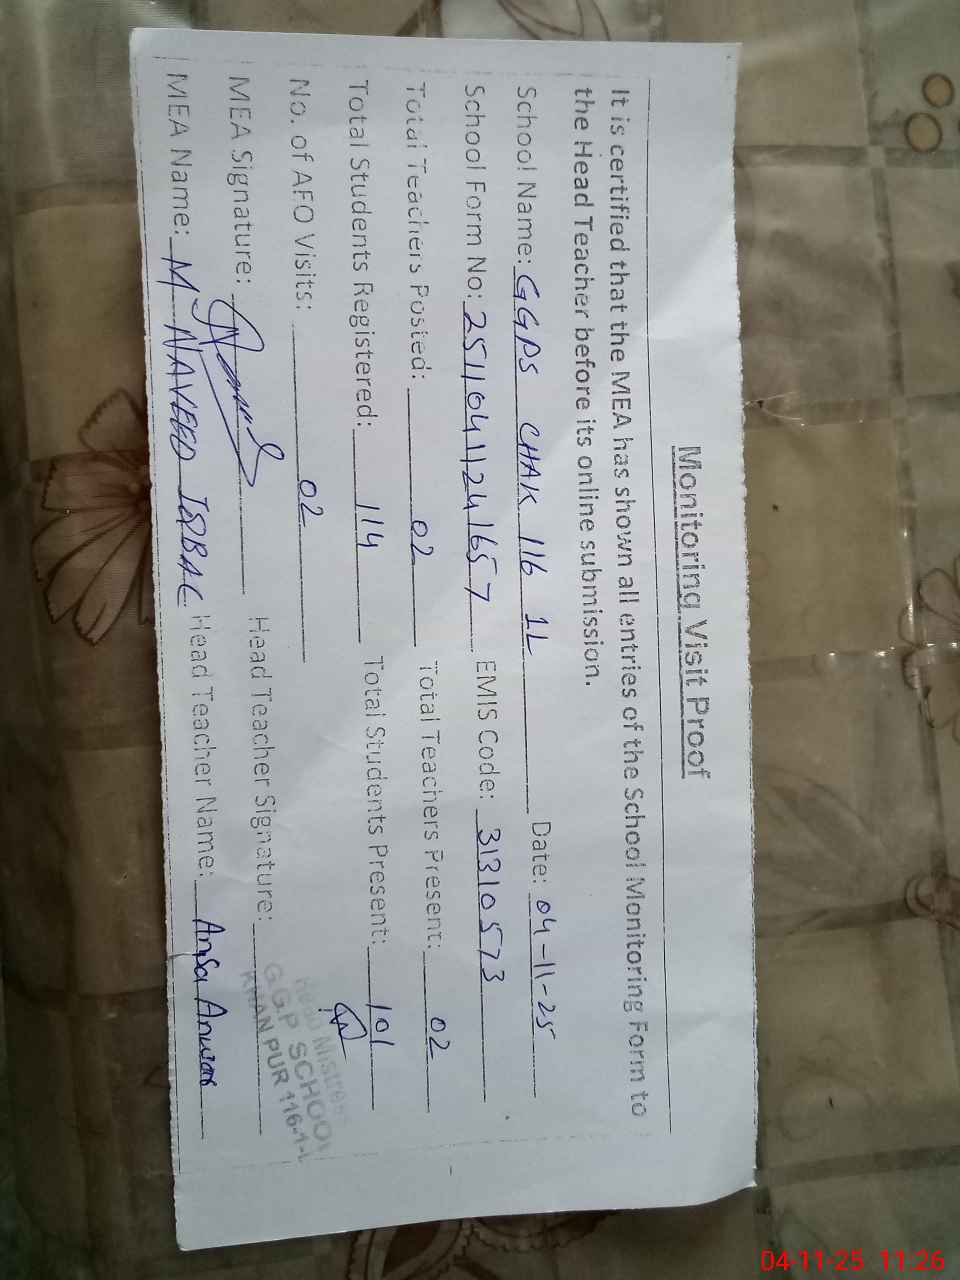 Monitoring Visit Proof
It is certified that the MEA has shown all entries of the School Monitoring Form to
the Head Teacher before its online submission.
School Name: GGPS CHAK 116 1L Date: 04-11-25
School Form No: 25110411241657 EMIS Code: 31310573
Total Teachers Posted: 02 Total Teachers Present: 02
Total Students Registered: 114 Total Students Present: 101
No. of AEO Visits: 02
MEA Signature: Head Teacher Signature:
Head Mistress
G.G.P SCHOOL
KHAN PUR 116-1-L
MEA Name: M NAVEED IQBAL Head Teacher Name: Ansa Anwar
04-11-25 11:26